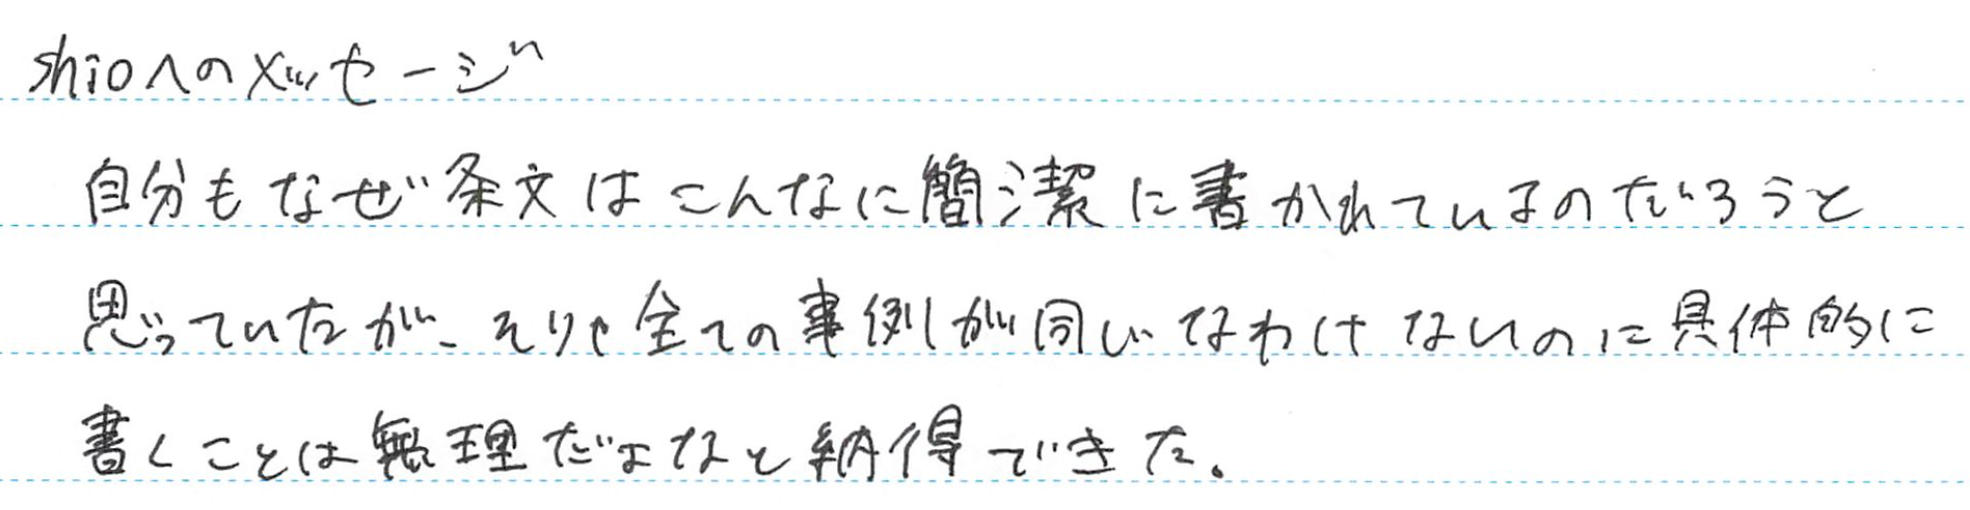 shioへのメッセージ
自分もなぜ条文はこんなに簡潔に書かれているのだろうと
思っていたが、そりゃ全ての事例が同じなわけないのに具体的に
書くことは無理だよなと納得できた。